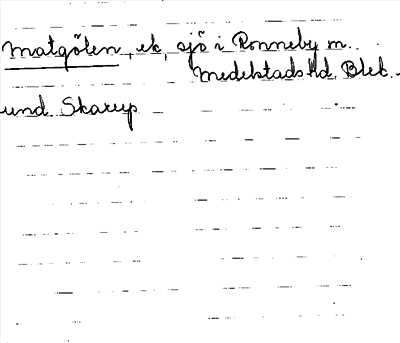 Matgölen, ek, sjö i Ronneby m.
Medelstads hd, Blek.
und. Skarup